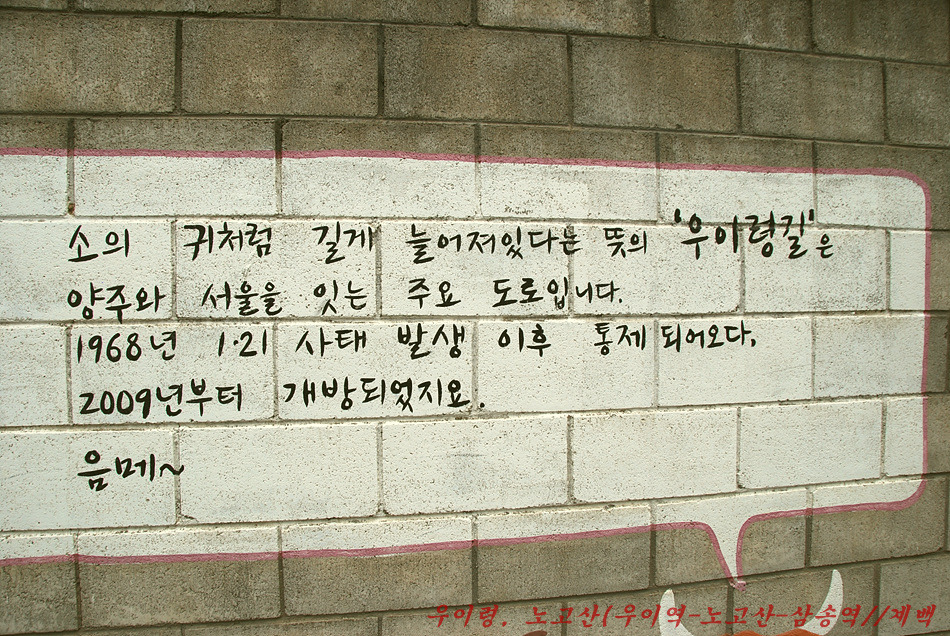 소의 귀처럼 길게 늘어져있다는 뜻의 '우이령길'은
양주와 서울을 잇는 주요 도로입니다.
1968년 1·21 사태 발생 이후 통제되어오다,
2009년부터 개방되었지요.
음메~
우이령. 노고산(우이역-노고산-삼송역//재백